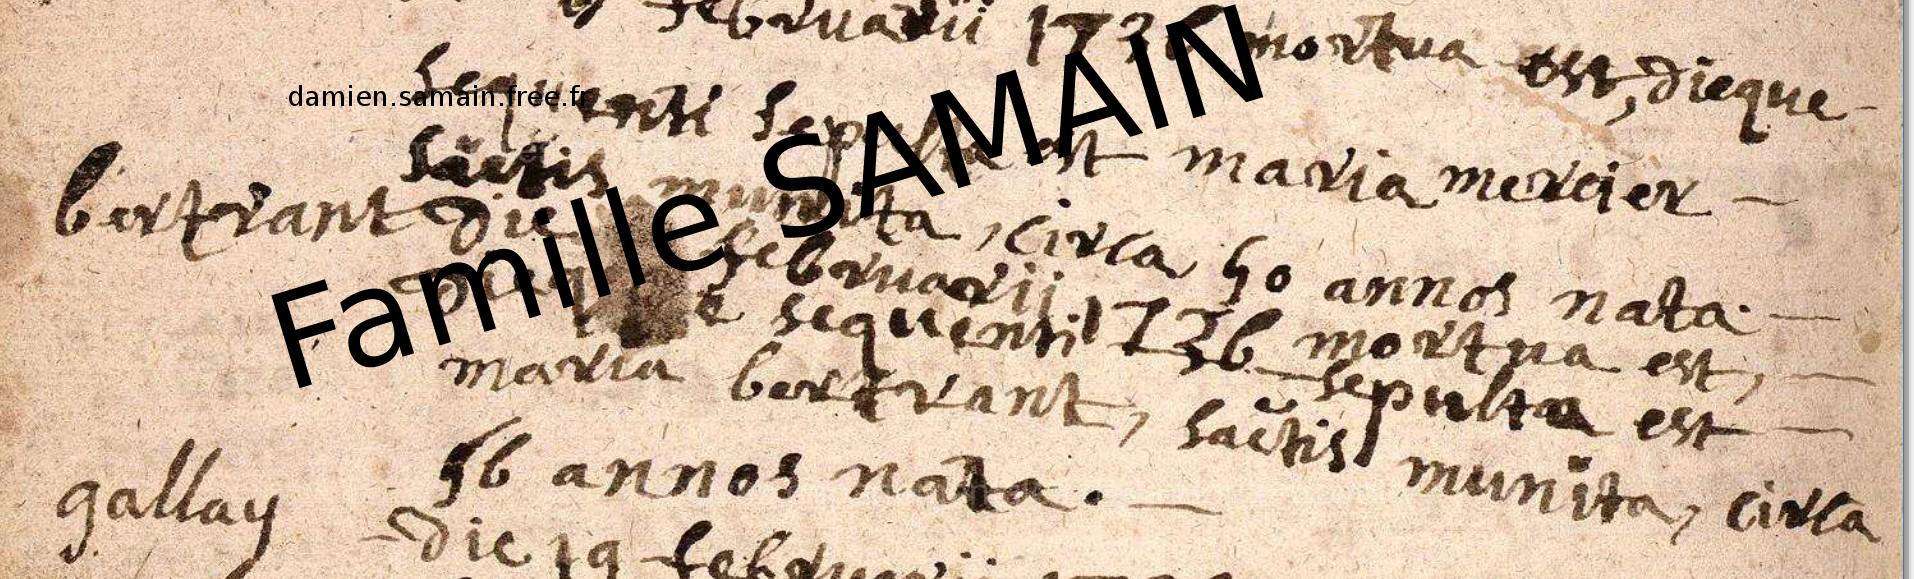 februarii 1736 mortua est, dieque
sequenti sepulta est maria mercier
sactis munita, circa 50 annos nata.
bertrant die februarii 1736 mortua est,
dieque sequenti sepulta est
maria bertrant, sactis munita, circa
56 annos nata.
gallay die 19 februarii
damien.samain.free.fr
Famille SAMAIN